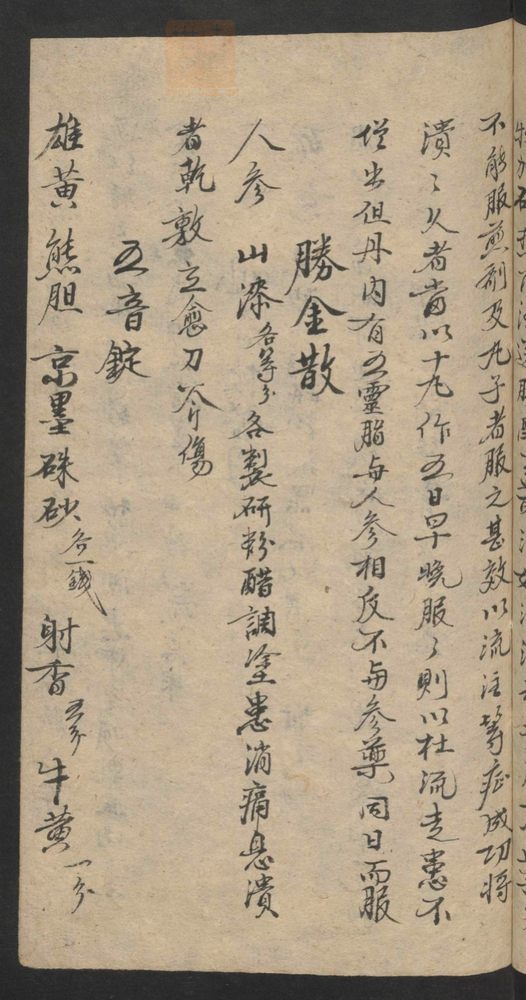 不能服煎剂及丸子者服之甚效以流注等症成功將
潰〻久者當以十丸作五日早晚服〻則以杜流走患不
增出但丹内有五靈脂与人參相反不与參藥同日而服
勝金散
人參 山漆各等分各製研粉醋調塗患消痛息潰
者乾敷立愈刀斧傷
五音錠
雄黃 熊胆 京墨 硃砂各一錢 射香五分 牛黃一分